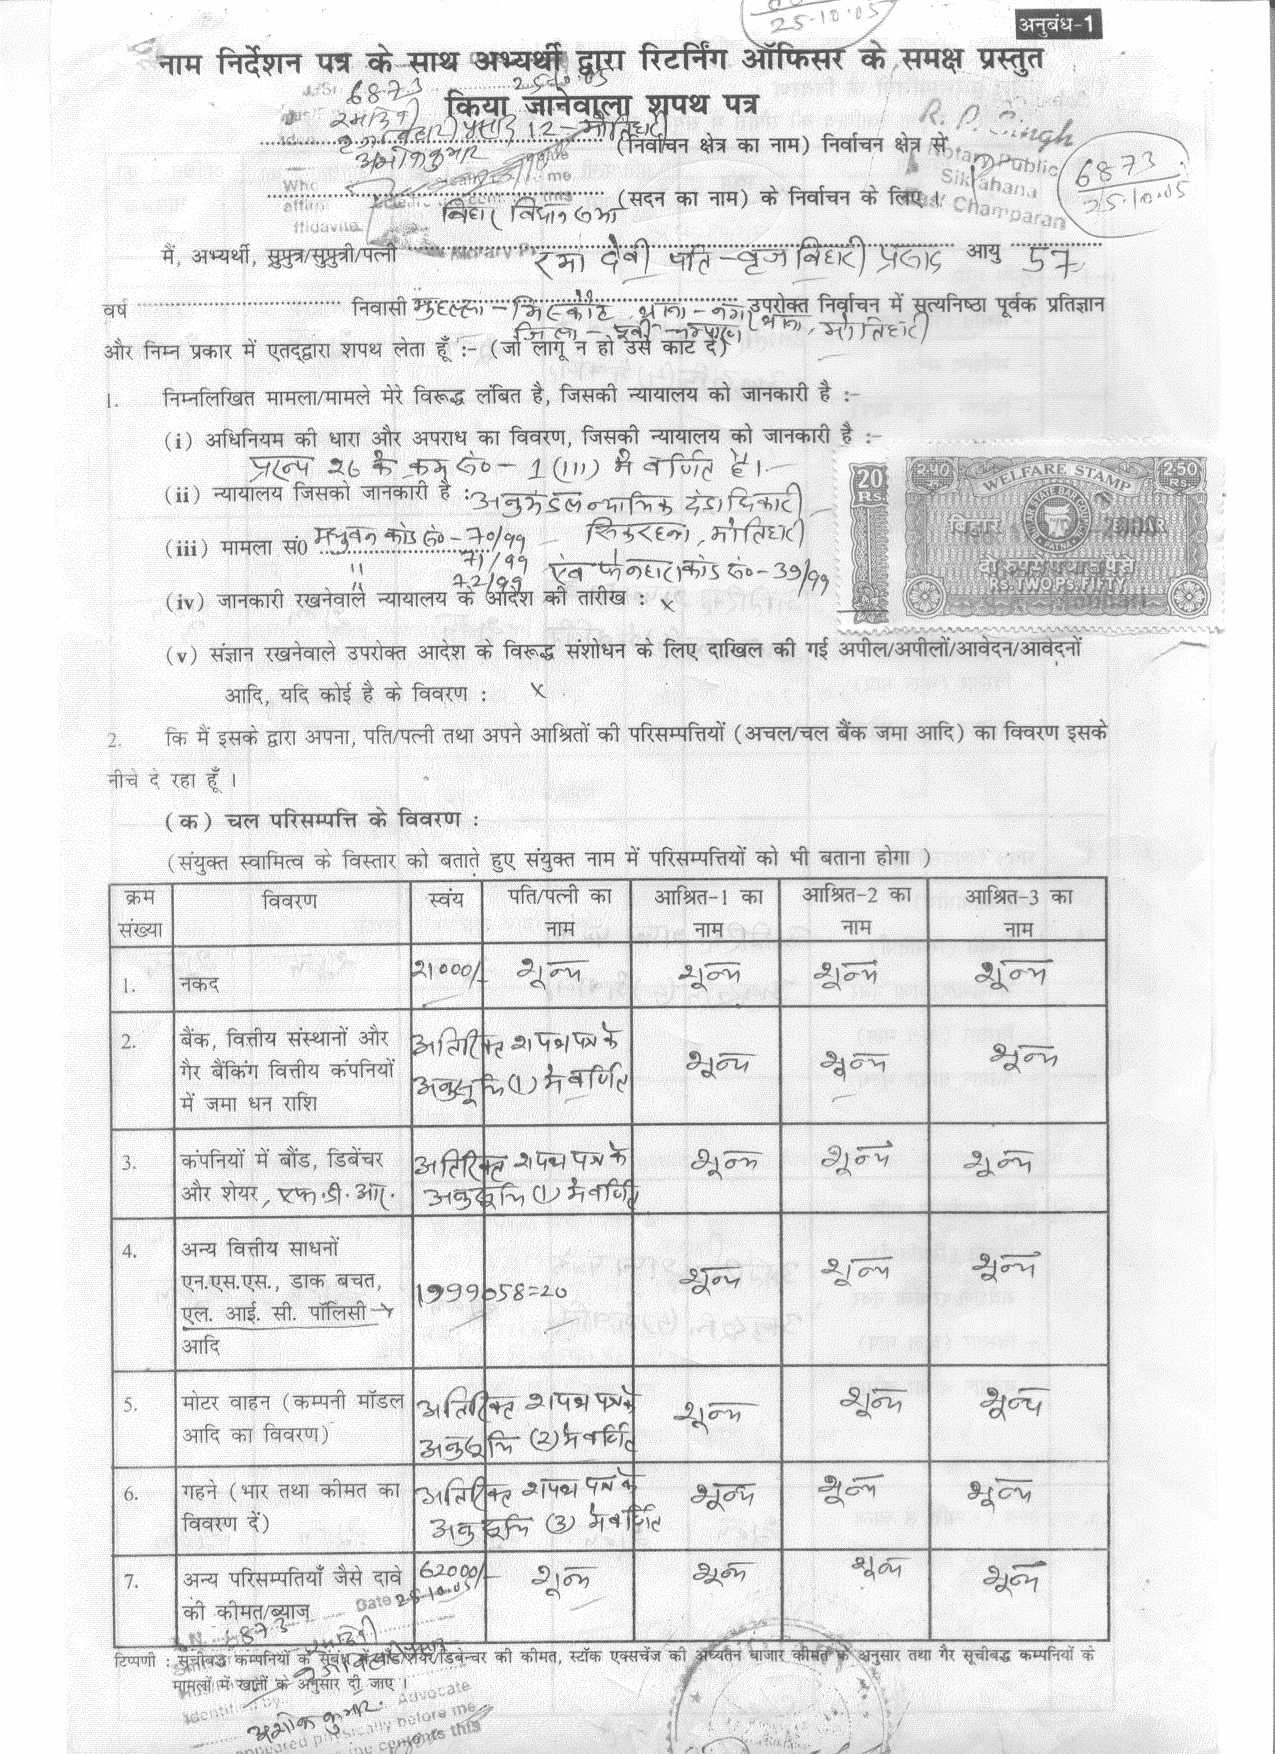 25.10.05
अनुबंध-1
नाम निर्देशन पत्र के साथ अभ्यर्थी द्वारा रिटर्निंग ऑफिसर के समक्ष प्रस्तुत
किया जानेवाला शपथ पत्र
6873
25.10.05
R. P. Singh
Notary Public
Sikrahana
East Champaran
6873
25.10.05
12-मोतिहारी (निर्वाचन क्षेत्र का नाम) निर्वाचन क्षेत्र से
अशोक कुमार
बिहार विधान सभा (सदन का नाम) के निर्वाचन के लिए ।
मैं, अभ्यर्थी, सुपुत्र/सुपुत्री/पत्नी रमा देवी पति - बृज बिहारी प्रसाद आयु 57
वर्ष निवासी मुहल्ला - मिस्कौट, थाना - नगर थाना, मोतिहारी उपरोक्त निर्वाचन में सत्यनिष्ठा पूर्वक प्रतिज्ञान
जिला - पूर्वी चम्पारण
और निम्न प्रकार में एतद्द्वारा शपथ लेता हूँ :- (जो लागू न हो उसे काट दें)
1. निम्नलिखित मामला/मामले मेरे विरूद्ध लंबित है, जिसकी न्यायालय को जानकारी है :-
(i) अधिनियम की धारा और अपराध का विवरण, जिसकी न्यायालय को जानकारी है :-
प्रारूप 26 के क्रम सं०- 1 (III) में वर्णित है।
(ii) न्यायालय जिसको जानकारी है : अनुमंडल न्यायिक दंडाधिकारी
सिकरहना, मोतिहारी
(iii) मामला सं0 मधुबन कांड सं०- 70/99
" 71/99
" 72/99 एवं फेनहारा कांड सं०- 39/99
(iv) जानकारी रखनेवाले न्यायालय के आदेश की तारीख : x
(v) संज्ञान रखनेवाले उपरोक्त आदेश के विरूद्ध संशोधन के लिए दाखिल की गई अपील/अपीलों/आवेदन/आवेदनों
आदि, यदि कोई है के विवरण : x
20 Rs.
2.50 Rs.
WELFARE STAMP
2.50 Rs.
बिहार BIHAR
दो रुपये पचास पैसे
Rs. TWO Ps. FIFTY
2. कि मैं इसके द्वारा अपना, पति/पत्नी तथा अपने आश्रितों की परिसम्पत्तियों (अचल/चल बैंक जमा आदि) का विवरण इसके
नीचे दे रहा हूँ ।
(क) चल परिसम्पत्ति के विवरण :
(संयुक्त स्वामित्व के विस्तार को बताते हुए संयुक्त नाम में परिसम्पत्तियों को भी बताना होगा )
क्रम संख्या विवरण स्वंय पति/पत्नी का नाम आश्रित-1 का नाम आश्रित-2 का नाम आश्रित-3 का नाम
1. नकद 21000/- शून्य शून्य शून्य शून्य
2. बैंक, वित्तीय संस्थानों और अतिरिक्त शपथ पत्र के शून्य शून्य शून्य
गैर बैंकिंग वित्तीय कंपनियों अनुसूचि (1) में वर्णित
में जमा धन राशि
3. कंपनियों में बौंड, डिबेंचर अतिरिक्त शपथ पत्र के शून्य शून्य शून्य
और शेयर, एफ.डी.आर. अनुसूचि (1) में वर्णित
4. अन्य वित्तीय साधनों
एन.एस.एस., डाक बचत, 1999058=20 शून्य शून्य शून्य
एल. आई. सी. पॉलिसी
आदि
5. मोटर वाहन (कम्पनी मॉडल अतिरिक्त शपथ पत्र के शून्य शून्य शून्य
आदि का विवरण) अनुसूचि (2) में वर्णित
6. गहने (भार तथा कीमत का अतिरिक्त शपथ पत्र के शून्य शून्य शून्य
विवरण दें) अनुसूचि (3) में वर्णित
7. अन्य परिसम्पतियाँ जैसे दावे 62000/- शून्य शून्य शून्य शून्य
की कीमत/ब्याज
Date 25.10.05
6873
टिप्पणी : सूचीबद्ध कम्पनियों के संबंध में बौंड/शेयर/डिबेन्चर की कीमत, स्टॉक एक्सचेंज की अध्यतन बाजार कीमत के अनुसार तथा गैर सूचीबद्ध कम्पनियों के
मामलों में खातों के अनुसार दी जाए ।
Identified by Advocate
अशोक कुमार
appeared physically before me
the contents this